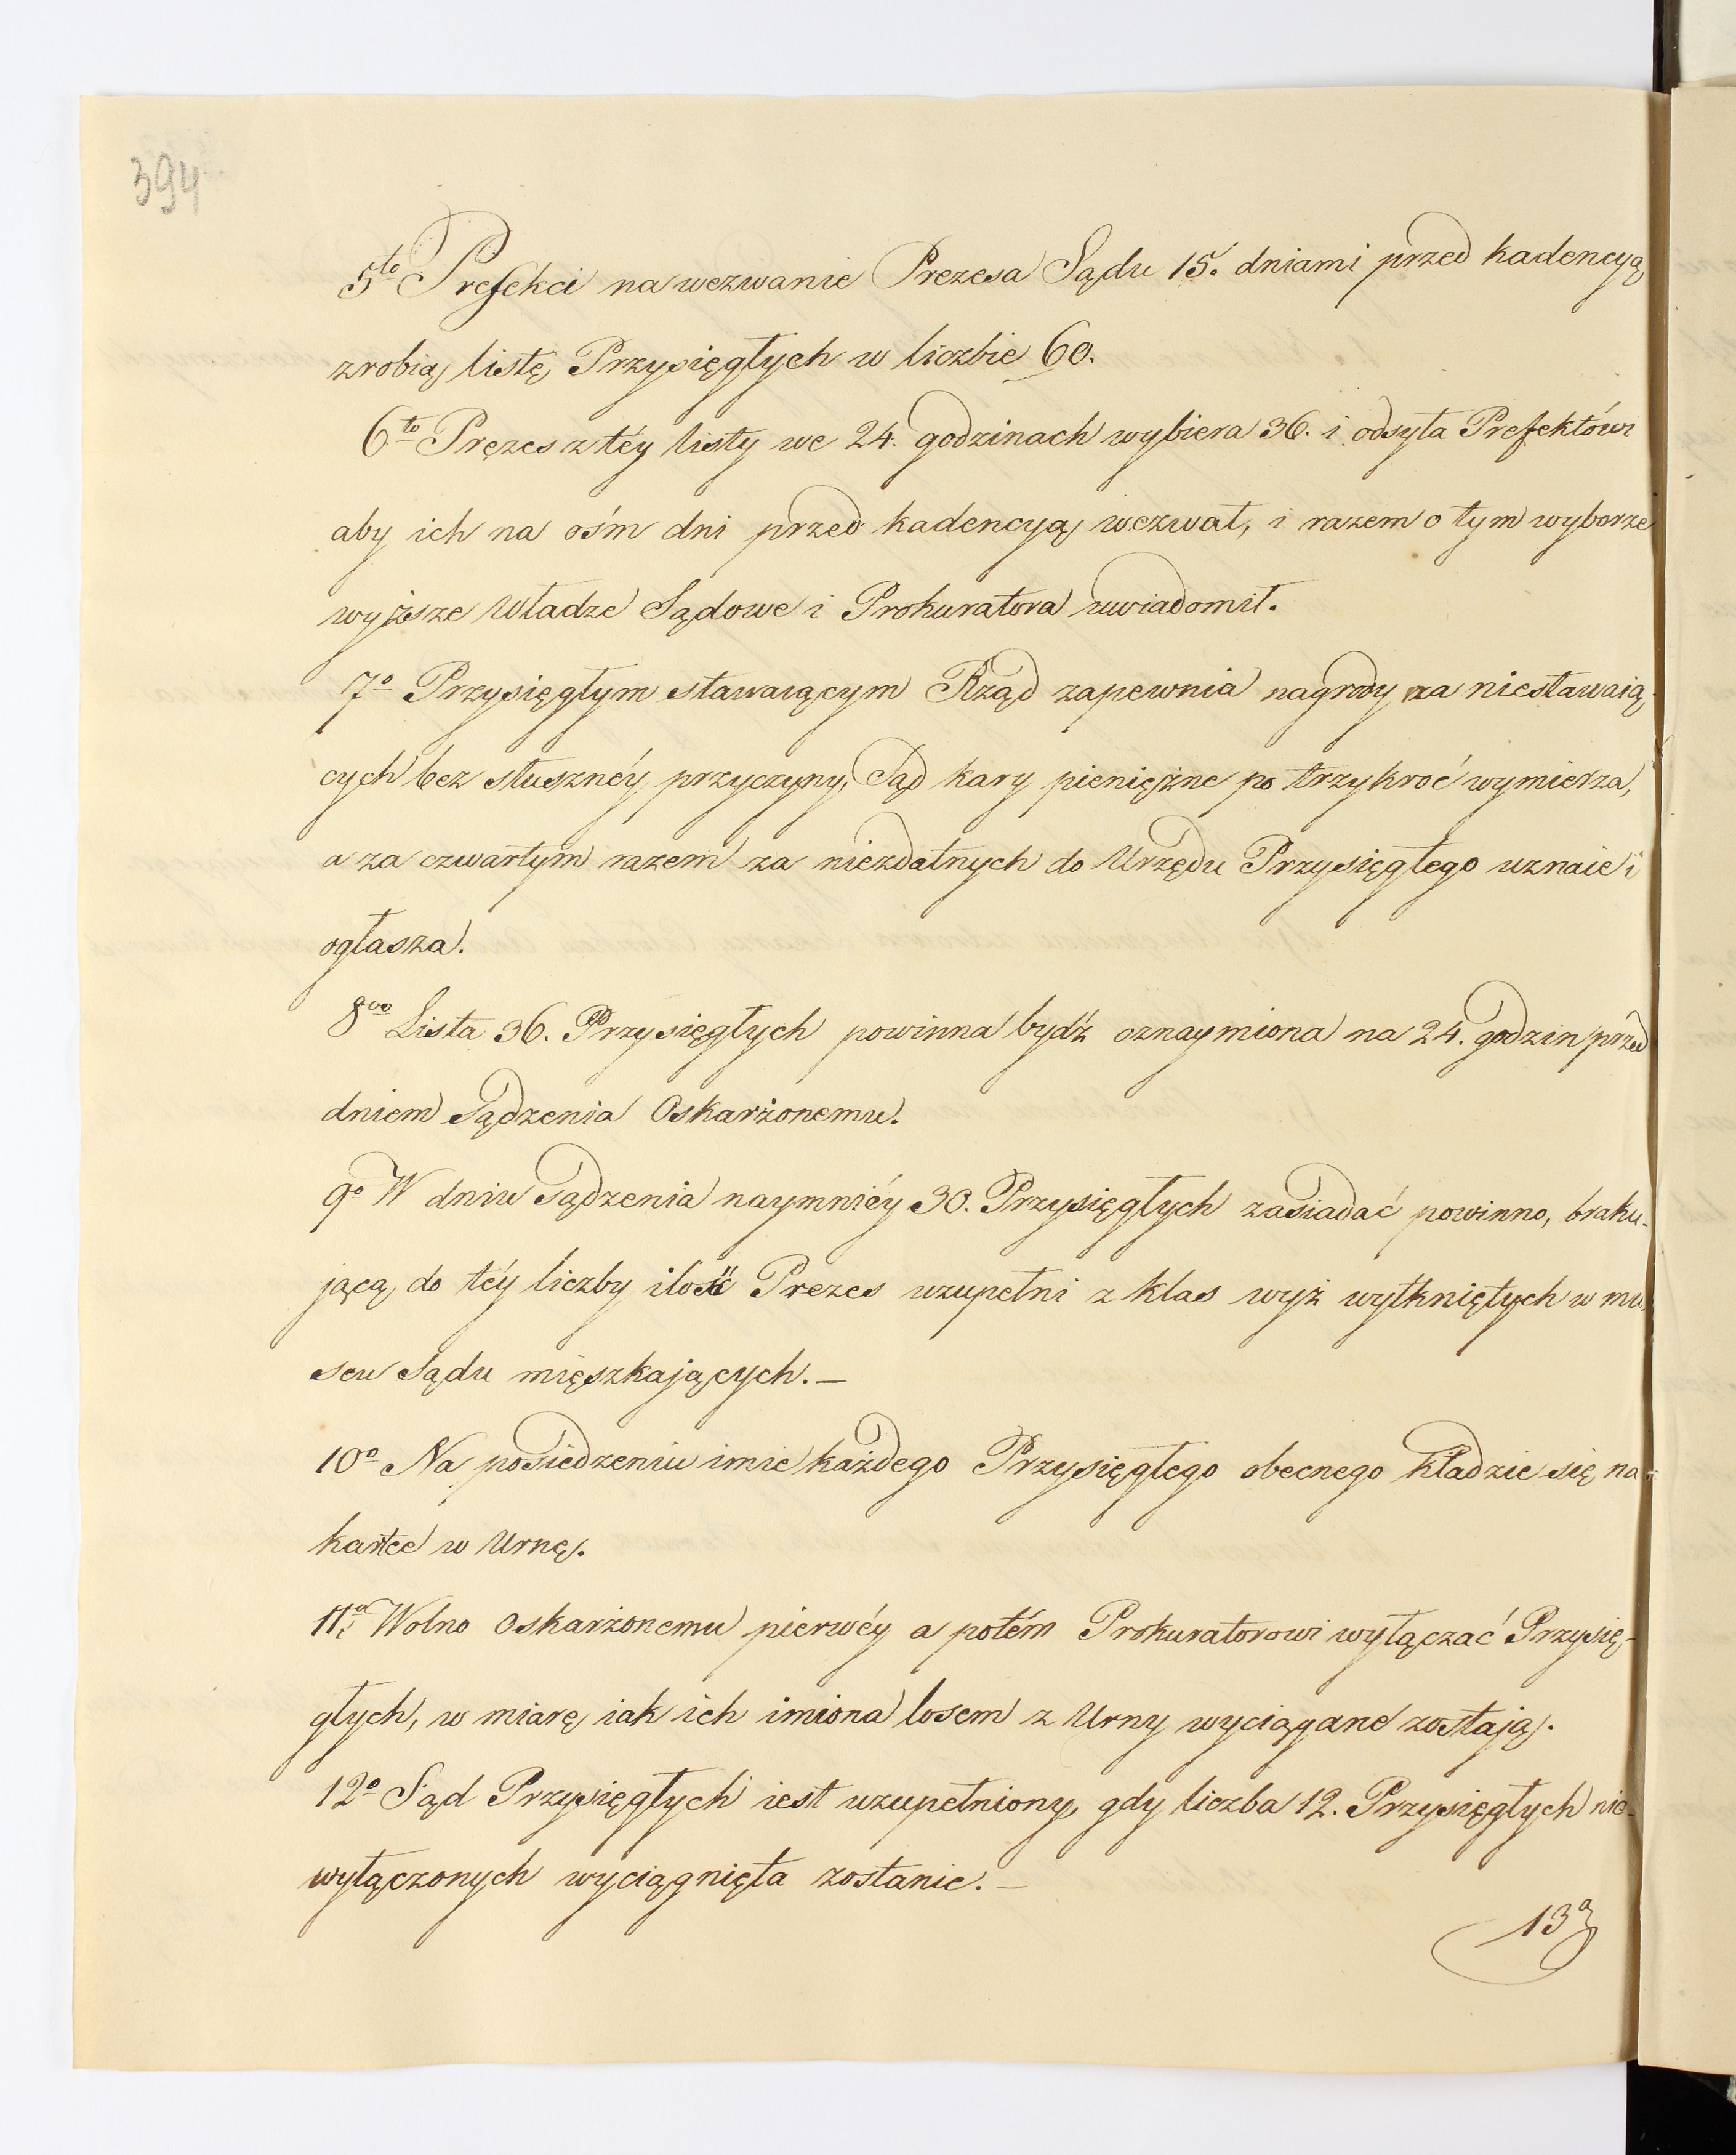 394
5to Prefekci na wezwanie Prezesa Sądu 15. dniami przed kadencyą
zrobią listę Przysięgłych w liczbie 60.
6to Prezes z téy listy we 24. godzinach wybiera 36. i odsyła Prefektówi
aby ich na ośm dni przed kadencyą wezwał, i razem o tym wyborze
wyższe Władze Sądowe i Prokuratora uwiadomił.
7o Przysięgłym stawaiącym Rząd zapewnia nagrody, za niestawaią-
cych bez słusznéy przyczyny, Sąd kary pieniężne po trzykroć wymierza,
a za czwartym razem za niezdatnych do Urzędu Przysięgłego uznaie i
ogłasza.
8vo Lista 36. Przysięgłych powinna bydź oznaymiona na 24. godzin przed
dniem Sądzenia Oskarżonemu.
9o W dniu Sądzenia naymniéy 30. Przysięgłych zasiadać powinno, braku-
jącą do téy liczby ilość Prezes uzupełni z klas wyż wytkniętych w miey
scu Sądu mięszkających.—
10o Na posiedzeniu imie każdego Przysięgłego obecnego kładzie się na
kartce w Urnę.
11o Wolno Oskarżonemu pierwéy a potém Prokuratorowi wyłączać Przysię-
głych, w miarę iak ich imiona losem z Urny wyciągane zostają.
12o Sąd Przysięgłych iest uzupełniony, gdy liczba 12. Przysięgłych nie-
wyłączonych wyciągnięta zostanie.—
13o